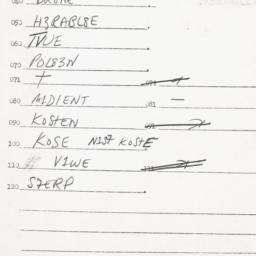 050 H3RABL8E
060 TVUE
070 POL83N
071 +
080 MIDIENT 081 —
090 KOSTEN 091
100 KOSE NIST KOSTE
110 VIWE 111
120 S7ERP